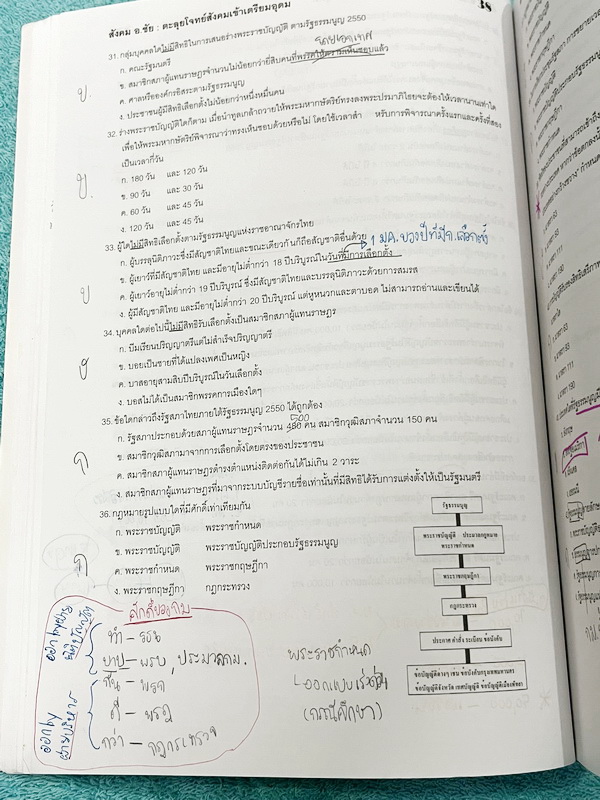 สังคม อ.ชัย : ตะลุยโจทย์สังคมเข้าเตรียมอุดม
38
31. กลุ่มบุคคลใดไม่มีสิทธิในการเสนอร่างพระราชบัญญัติ ตามรัฐธรรมนูญ 2550
ก. คณะรัฐมนตรี
ข. สมาชิกสภาผู้แทนราษฎรจำนวนไม่น้อยกว่ายี่สิบคนที่พรรคให้ความเห็นชอบแล้ว
ค. ศาลหรือองค์กรอิสระตามรัฐธรรมนูญ
ง. ประชาชนผู้มีสิทธิเลือกตั้งไม่น้อยกว่าหนึ่งหมื่นคน
32. ร่างพระราชบัญญัติใดก็ตาม เมื่อนำทูลเกล้าถวายให้พระมหากษัตริย์ทรงลงพระปรมาภิไธยจะต้องให้เวลานานเท่าใด
เพื่อให้พระมหากษัตริย์พิจารณาว่าทรงเห็นชอบด้วยหรือไม่ โดยใช้เวลาสำ หรับการพิจารณาครั้งแรกและครั้งที่สอง
เป็นเวลากี่วัน
ก. 180 วัน และ 120 วัน
ข. 90 วัน และ 30 วัน
ค. 60 วัน และ 45 วัน
ง. 120 วัน และ 45 วัน
33. ผู้ใดไม่มีสิทธิเลือกตั้งตามรัฐธรรมนูญแห่งราชอาณาจักรไทย
1 มค. ของปีที่มีก.เลือกตั้ง
ก. ผู้บรรลุนิติภาวะซึ่งมีสัญชาติไทยและขณะเดียวกันก็ถือสัญชาติอื่นด้วย
ข. ผู้เยาว์ที่มีสัญชาติไทย และมีอายุไม่ต่ำกว่า 18 ปีบริบูรณ์ในวันที่มีการเลือกตั้ง
ค. ผู้เยาว์อายุไม่ต่ำกว่า 19 ปีบริบูรณ์ ซึ่งมีสัญชาติไทยและบรรลุนิติภาวะด้วยการสมรส
ง. ผู้มีสัญชาติไทย และมีอายุไม่ต่ำกว่า 20 ปีบริบูรณ์ แต่หูหนวกและตาบอด ไม่สามารถอ่านและเขียนได้
34. บุคคลใดต่อไปนี้ไม่มีสิทธิรับเลือกตั้งเป็นสมาชิกสภาผู้แทนราษฎร
ก. บีมเรียนปริญญาตรีแต่ไม่สำเร็จปริญญาตรี
ข. บอยเป็นชายที่ได้แปลงเพศเป็นหญิง
ค. บาสอายุสามสิบปีบริบูรณ์ในวันเลือกตั้ง
ง. บอสไม่ได้เป็นสมาชิกพรรคการเมืองใดๆ
35. ข้อใดกล่าวถึงรัฐสภาไทยภายใต้รัฐธรรมนูญ 2550 ได้ถูกต้อง
500
ก. รัฐสภาประกอบด้วยสภาผู้แทนราษฎรจำนวน 480 คน สมาชิกวุฒิสภาจำนวน 150 คน
ข. สมาชิกวุฒิสภามาจากการเลือกตั้งโดยตรงของประชาชน
ค. สมาชิกสภาผู้แทนราษฎรดำรงตำแหน่งติดต่อกันได้ไม่เกิน 2 วาระ
ง. สมาชิกสภาผู้แทนราษฎรที่มาจากระบบบัญชีรายชื่อเท่านั้นที่มีสิทธิได้รับการแต่งตั้งให้เป็นรัฐมนตรี
36. กฎหมายรูปแบบใดที่มีศักดิ์เท่าเทียมกัน
ก. พระราชบัญญัติ พระราชกำหนด
ข. พระราชบัญญัติ พระราชบัญญัติประกอบรัฐธรรมนูญ
ค. พระราชกำหนด พระราชกฤษฎีกา
ง. พระราชกฤษฎีกา กฎกระทรวง
รัฐธรรมนูญ
พระราชบัญญัติ ประมวลกฎหมาย
พระราชกำหนด
พระราชกฤษฎีกา
กฎกระทรวง
ประกาศ คำสั่ง ระเบียบ ข้อบังคับ
ข้อบัญญัติต่างๆ เช่น ข้อบังคับกรุงเทพมหานคร
ข้อบัญญัติจังหวัด เทศบัญญัติ ข้อบัญญัติเมืองพัทยา
ศักดิ์ของกม
ทำ – รธน
บาป – พรบ, ประมวลกม.
กัน – พรก
ดี – พรฎ
กว่า – กฎกระทรวง
ออกby ฝ่ายนิติบัญญัติ
ออกby ฝ่ายบริหาร
พระราชกำหนด
ออกแบบเร่งด่วน
(กรณีศึกษา)